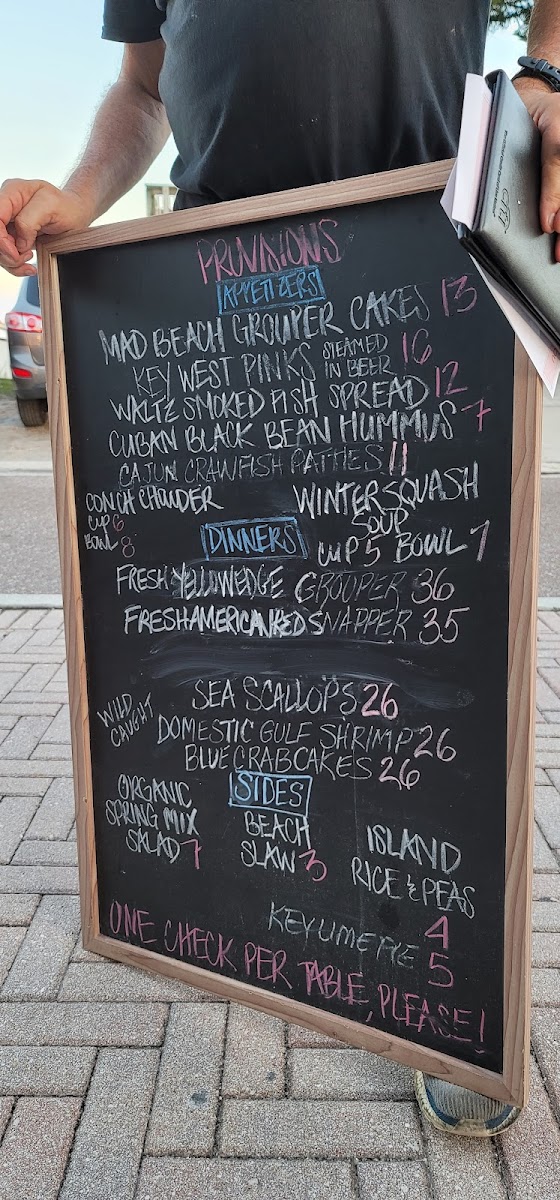 PROVISIONS
APPETIZERS
MAD BEACH GROUPER CAKES 13
KEY WEST PINKS STEAMED IN BEER 16
WALT'S SMOKED FISH SPREAD 12
CUBAN BLACK BEAN HUMMUS 7
CAJUN CRAWFISH PATTIES 11
CONCH CHOWDER
CUP 6
BOWL 8
WINTER SQUASH
SOUP
CUP 5 BOWL 7
DINNERS
FRESH YELLOWEDGE GROUPER 36
FRESH AMERICAN RED SNAPPER 35
WILD
CAUGHT
SEA SCALLOPS 26
DOMESTIC GULF SHRIMP 26
BLUE CRABCAKES 26
SIDES
ORGANIC
SPRING MIX
SALAD 7
BEACH
SLAW 3
ISLAND
RICE & PEAS
4
KEY LIME PIE 5
ONE CHECK PER TABLE, PLEASE!